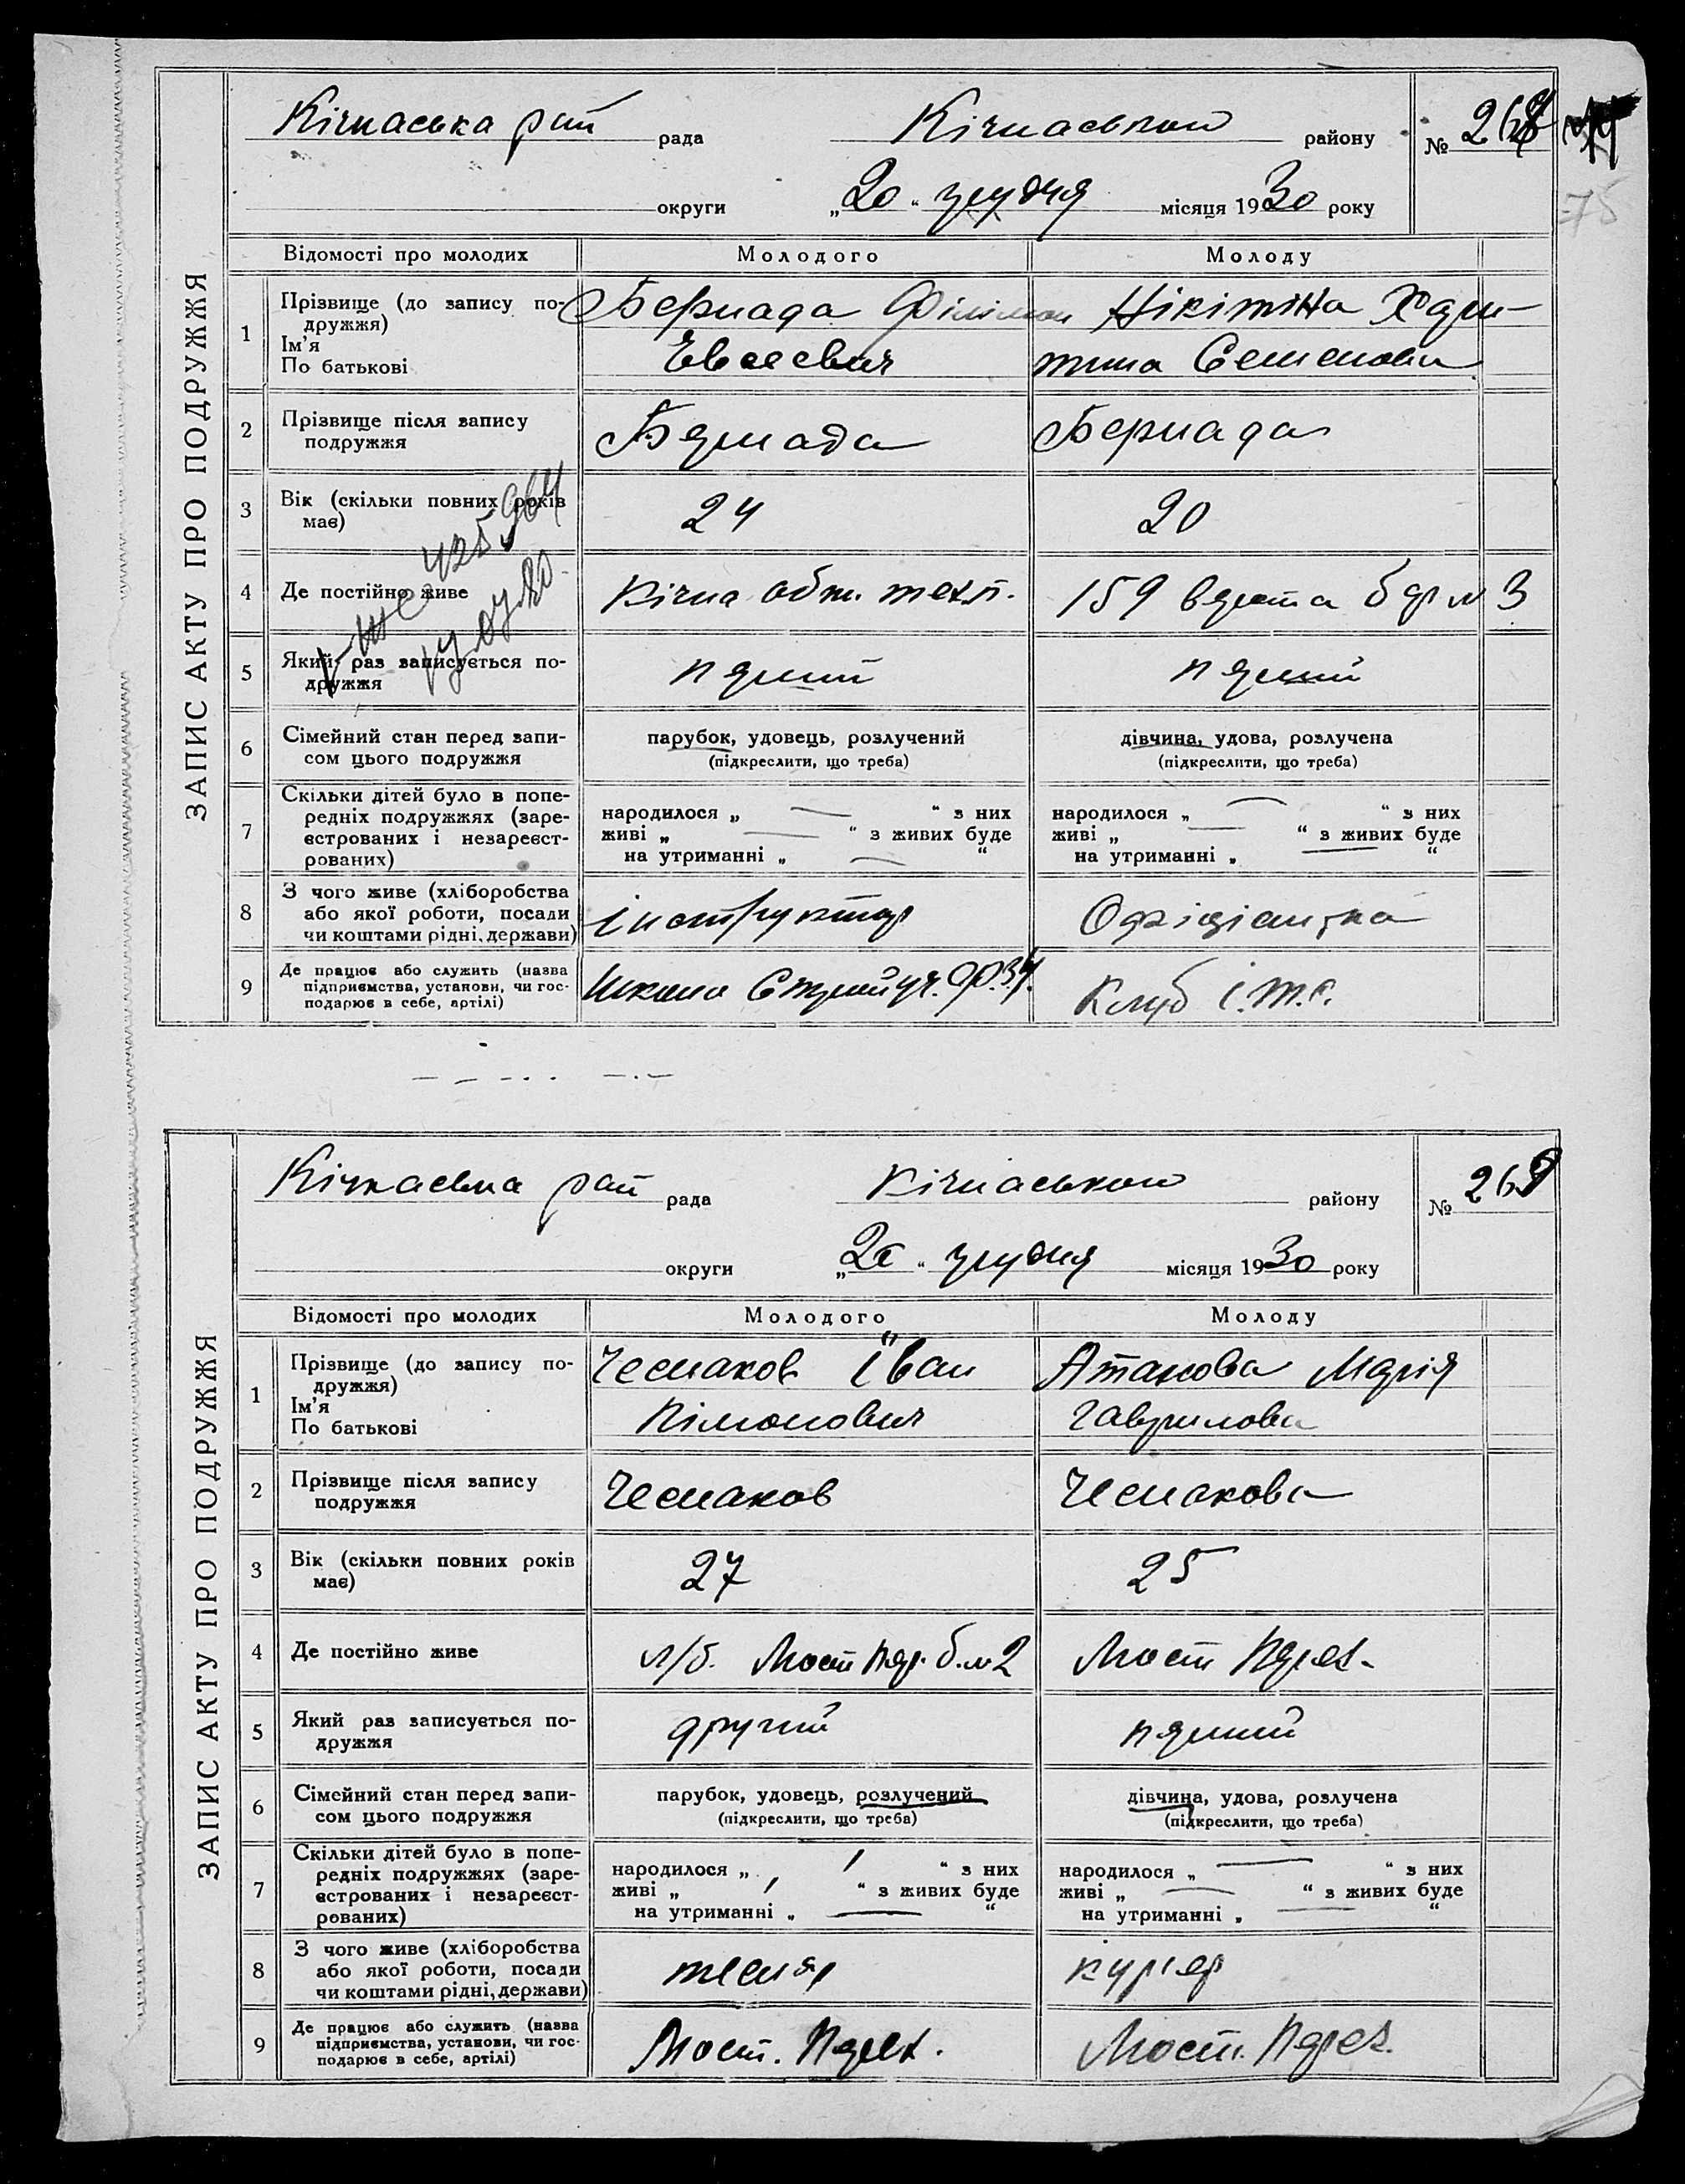 ЗАПИС АКТУ ПРО ПОДРУЖЖЯ
Кічкаська рай рада Кічкаського району № 268
75
округи „20“ грудня місяця 1930 року
Відомості про молодих Молодого Молоду
1 Прізвище (до запису по-
дружжя)
Ім'я
По батькові
Бермада Філімон
Евсеевич
Нікітіна Хари-
тина Семеновна
2 Прізвище після запису
подружжя
Бермада Бермада
3 Вік (скільки повних років
має)
24 20
4 Де постійно живе
Кічка 159 б ар № 3
5 Який раз записується по-
дружжя
перший перший
6 Сімейний стан перед запи-
сом цього подружжя
парубок, удовець, розлучений
(підкреслити, що треба)
дівчина, удова, розлучена
(підкреслити, що треба)
7 Скільки дітей було в попе-
редніх подружжях (заре-
єстрованих і незареєст-
рованих)
народилося „ — “ з них
живі „ — “ з живих буде
на утриманні „ — “
народилося „ — “ з них
живі „ — “ з живих буде
на утриманні „ — “
8 З чого живе (хліборобства
або якої роботи, посади
чи коштами рідні, держави)
інструктор Офіціантка
9 Де працює або служить (назва
підприємства, установи, чи гос-
подарює в себе, артілі)
Школа Ф.З.У.
Клуб І.Т.С.
ЗАПИС АКТУ ПРО ПОДРУЖЖЯ
Кічкаська рай рада Кічкаського району № 269
округи „20“ грудня місяця 1930 року
Відомості про молодих Молодого Молоду
1 Прізвище (до запису по-
дружжя)
Ім'я
По батькові
Чесмаков Іван
Кімонович
Атакова Марія
Гаврилова
2 Прізвище після запису
подружжя
Чесмаков Чесмакова
3 Вік (скільки повних років
має)
27 25
4 Де постійно живе
л/б. Мост пер. б. № 2 Мост Перех.
5 Який раз записується по-
дружжя
другий перший
6 Сімейний стан перед запи-
сом цього подружжя
парубок, удовець, розлучений
(підкреслити, що треба)
дівчина, удова, розлучена
(підкреслити, що треба)
7 Скільки дітей було в попе-
редніх подружжях (заре-
єстрованих і незареєст-
рованих)
народилося „ 1 “ з них
живі „ 1 “ з живих буде
на утриманні „ — “
народилося „ — “ з них
живі „ — “ з живих буде
на утриманні „ — “
8 З чого живе (хліборобства
або якої роботи, посади
чи коштами рідні, держави)
тесляр кур'єр
9 Де працює або служить (назва
підприємства, установи, чи гос-
подарює в себе, артілі)
Мост. Перех. Мост. Перех.